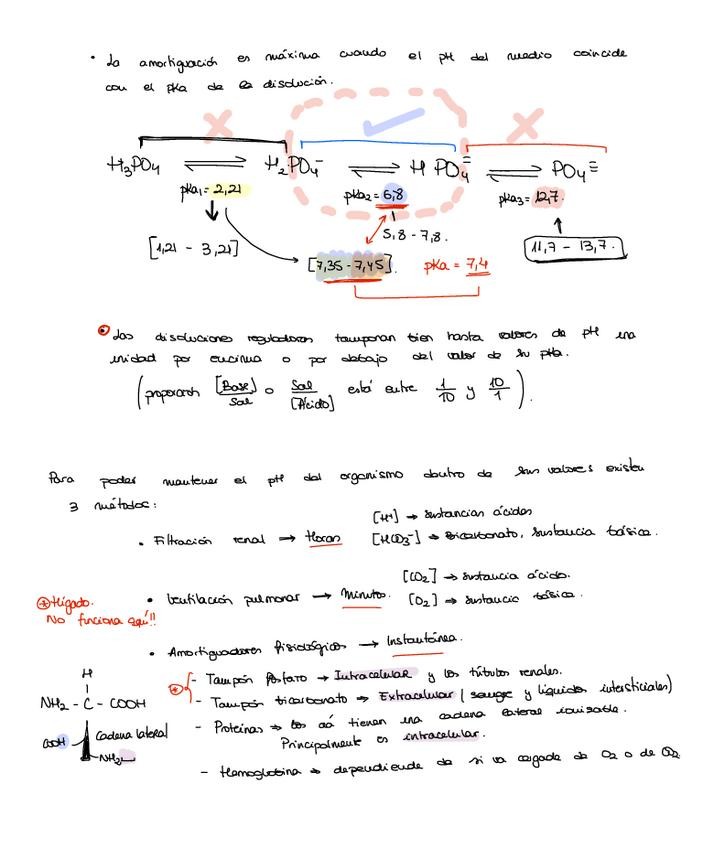 • La amortiguación es máxima cuando el pH del medio coincide
con el pKa de la disolución.
H₃PO₄ ⇌ H₂PO₄⁻ ⇌ HPO₄⁼ ⇌ PO₄≡
pKa₁ = 2,21 pKa₂ = 6,8 pKa₃ = 12,7.
[1,21 - 3,21] 5,8 - 7,8. 11,7 - 13,7.
[7,35 - 7,45]. pKa = 7,4
Las disoluciones reguladoras tamponan bien hasta valores de pH una
unidad por encima o por debajo del valor de su pKa.
(proporción [Base]/Sal o Sal/[Ácido] está entre 1/10 y 10/1).
Para poder mantener el pH del organismo dentro de sus valores existen
3 métodos:
[H⁺] → sustancias ácidas
• Filtración renal → Horas [HCO₃⁻] → Bicarbonato, sustancia básica.
[CO₂] → sustancia ácida.
• Ventilación pulmonar → Minutos. [O₂] → sustancia básica.
* Hígado.
No funciona aquí!!
• Amortiguadores fisiológicos → Instantánea.
* - Tampón fosfato → Intracelular y los túbulos renales.
- Tampón bicarbonato → Extracelular (sangre y líquidos intersticiales)
- Proteínas → los aá tienen una cadena lateral ionizable.
Principalmente es intracelular.
- Hemoglobina → dependiendo de si va cargada de O₂ o de CO₂
H
NH₂ - C - COOH
Cadena lateral
COOH
NH₂